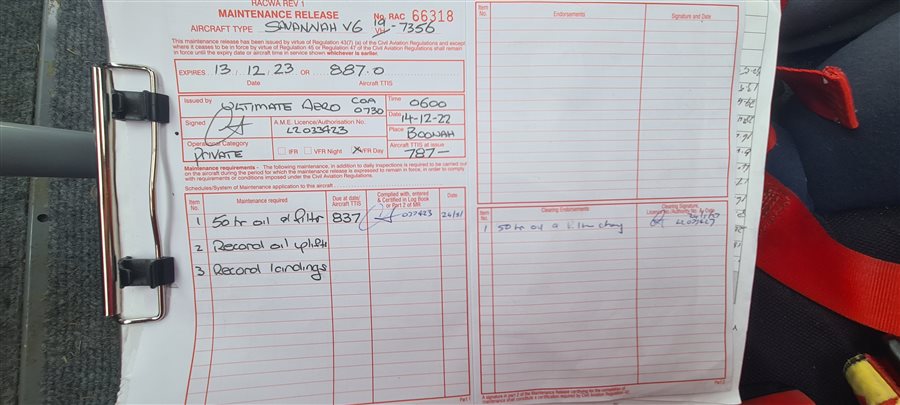 RACWA REV 1
MAINTENANCE RELEASE No. RAC 66318
AIRCRAFT TYPE SAVANNAH VG 19 -7356
This maintenance release has been issued by virtue of Regulation 43(7) (a) of the Civil Aviation Regulations and except
where it ceases to be in force by virtue of Regulation 45 or Regulation 47 of the Civil Aviation Regulations shall remain
in force until the expiry date or aircraft time in service shown whichever is earlier.
EXPIRES 13 / 12 / 23 OR 887.0
Date Aircraft TTIS
Issued by ULTIMATE AERO COA 0730
Time 0600
Signed
A.M.E. Licence/Authorisation No.
L2033423
Date 14-12-22
Place BOONAH
Operational Category
PRIVATE
IFR VFR Night VFR Day
Aircraft TTIS at issue
787-
Maintenance requirements - The following maintenance, in addition to daily inspections is required to be carried out
on the aircraft during the period for which the maintenance release is expressed to remain in force, in order to comply
with requirements or conditions imposed under the Civil Aviation Regulations.
Schedules/System of Maintenance application to this aircraft
Item No. Maintenance required Due at date/ Aircraft TTIS Complied with, entered & Certified in Log Book or Part 2 of MR Date
1 50 hr oil & filter 837
2 Record oil uplift
3 Record landings
Part 1
Item No. Endorsements Signature and Date
Item No. Clearing Endorsements Clearing Signature, Licence No./Authority No. & Date
1 50 hr oil
A signature in part 2 of the Maintenance Release certifying for the completion of
maintenance shall constitute a certification required by Civil Aviation Regulation
Part 2